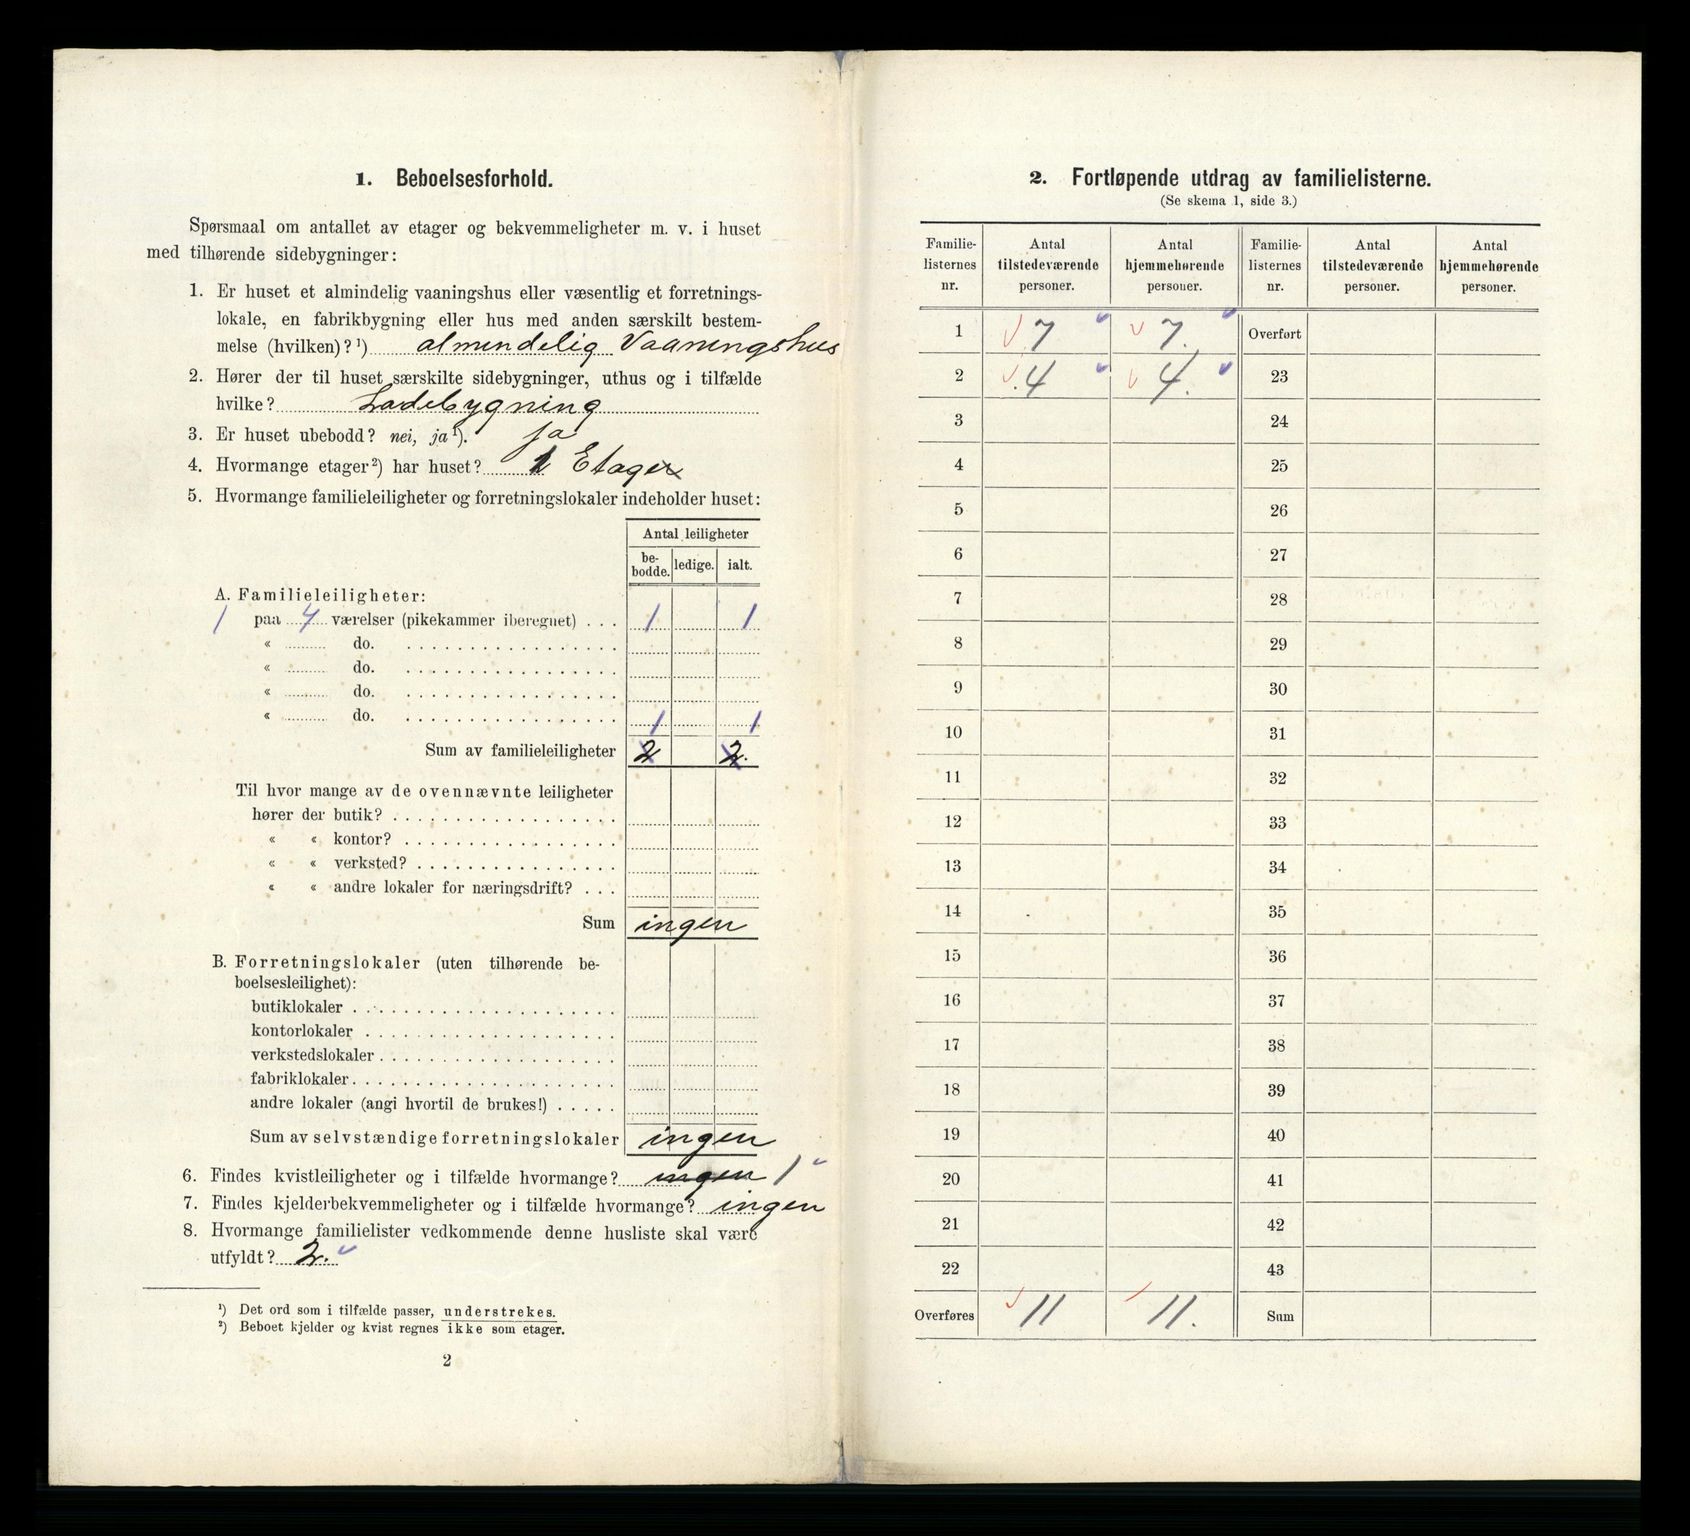 1. Beboelsesforhold.
Spørsmaal om antallet av etager og bekvemmeligheter m. v. i huset
med tilhørende sidebygninger:
1. Er huset et almindelig vaaningshus eller væsentlig et forretnings-
lokale, en fabrikbygning eller hus med anden særskilt bestem-
melse (hvilken)?¹) almindelig Vaaningshus
2. Hører der til huset særskilte sidebygninger, uthus og i tilfælde
hvilke? Ladebygning
3. Er huset ubebodd? nei, ja¹). ja
4. Hvormange etager²) har huset? 1 Etager
5. Hvormange familieleiligheter og forretningslokaler indeholder huset:
Antal leiligheter
be-
bodde. ledige. ialt.
A. Familieleiligheter:
1 paa 4 værelser (pikekammer iberegnet) . . . 1 1
« do.
« do.
« do.
« do. 1 1
Sum av familieleiligheter 2 2.
Til hvor mange av de ovennævnte leiligheter
hører der butik?
« « kontor?
« « verksted?
« « andre lokaler for næringsdrift?
Sum ingen
B. Forretningslokaler (uten tilhørende be-
boelsesleilighet):
butiklokaler
kontorlokaler
verkstedslokaler
fabriklokaler
andre lokaler (angi hvortil de brukes!)
Sum av selvstændige forretningslokaler ingen
6. Findes kvistleiligheter og i tilfælde hvormange? ingen 1
7. Findes kjelderbekvemmeligheter og i tilfælde hvormange? ingen
8. Hvormange familielister vedkommende denne husliste skal være
utfyldt? 2.
¹) Det ord som i tilfælde passer, understrekes.
²) Beboet kjelder og kvist regnes ikke som etager.
2
2. Fortløpende utdrag av familielisterne.
(Se skema 1, side 3.)
Familie-
listernes
nr.
Antal
tilstedeværende
personer.
Antal
hjemmehørende
personer.
Familie-
listernes
nr.
Antal
tilstedeværende
personer.
Antal
hjemmehørende
personer.
1 7 7. Overført
2 4 4. 23
3 24
4 25
5 26
6 27
7 28
8 29
9 30
10 31
11 32
12 33
13 34
14 35
15 36
16 37
17 38
18 39
19 40
20 41
21 42
22 43
Overføres 11 11. Sum